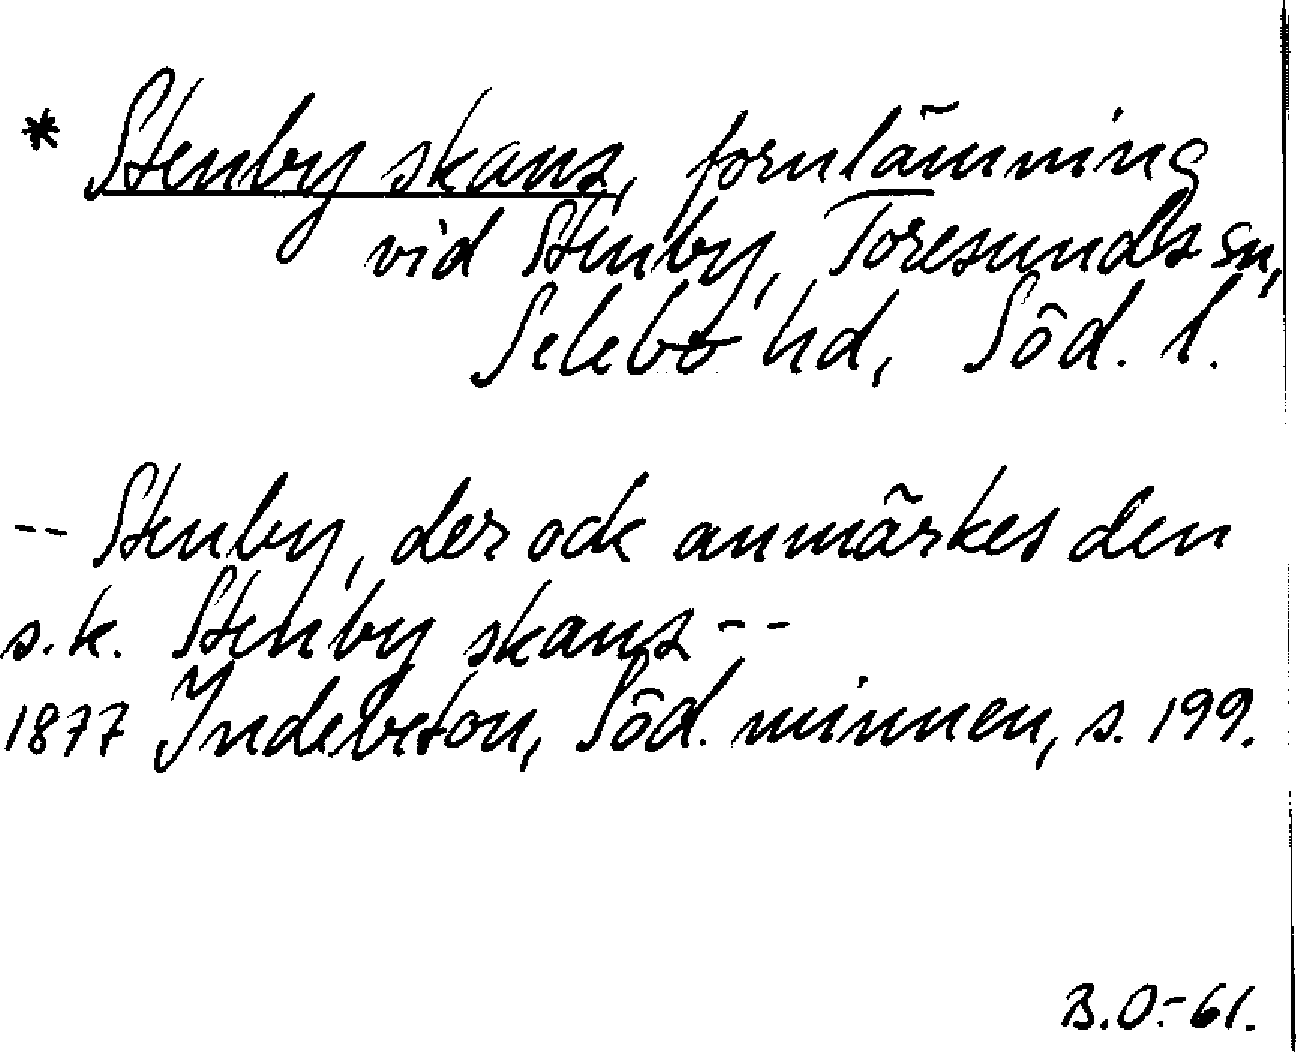 * Stenby skans, fornlämning
vid Stenby, Toresunds sn,
Selebo hd, Söd. l.
-- Stenby, der ock anmärkes den
s.k. Stenby skans --
1877 Indebetou, Söd. minnen, s. 199.
B.O.-61.